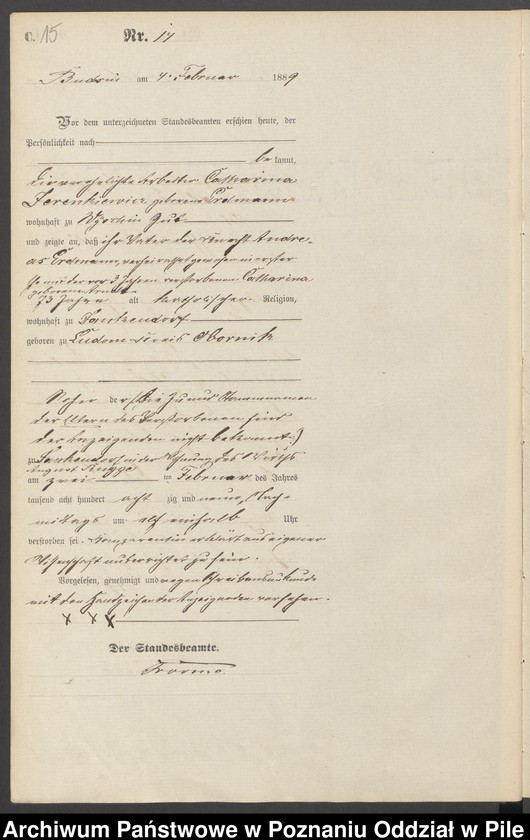 C. 15 Nr. 14
Budsin am 4. Februar 1889
Vor dem unterzeichneten Standesbeamten erschien heute, der
Persönlichkeit nach
be kannt,
die verehelichte Arbeiter Catharina
Ferenkiewicz geborene Erdmann
wohnhaft zu Gut
und zeigte an, daß ihr Vater der Knecht Andre-
as Erdmann, verheirathet gewesen in erster
Ehe mit der vor 3 Jahren verstorbenen Catharina
geborene
73 Jahre alt katholischer Religion,
wohnhaft zu Jankendorf
geboren zu Ludom Kreis Obornik
Sohn der (die Zu und Vornamen
der Eltern des Verstorbenen sind
der Anzeigenden nicht bekannt)
zu Jankendorf in der Wohnung des Wirths
August
am zwei ten Februar des Jahres
tausend acht hundert acht zig und neun, Nach-
mittags um elf einhalb Uhr
verstorben sei. Komparentin erklärt aus eigener
Wissenschaft unterrichtet zu sein.
Vorgelesen, genehmigt und wegen Schreibensunkunde
mit den Handzeichen der Anzeigenden versehen.
X X X
Der Standesbeamte.
Archiwum Państwowe w Poznaniu Oddział w Pile